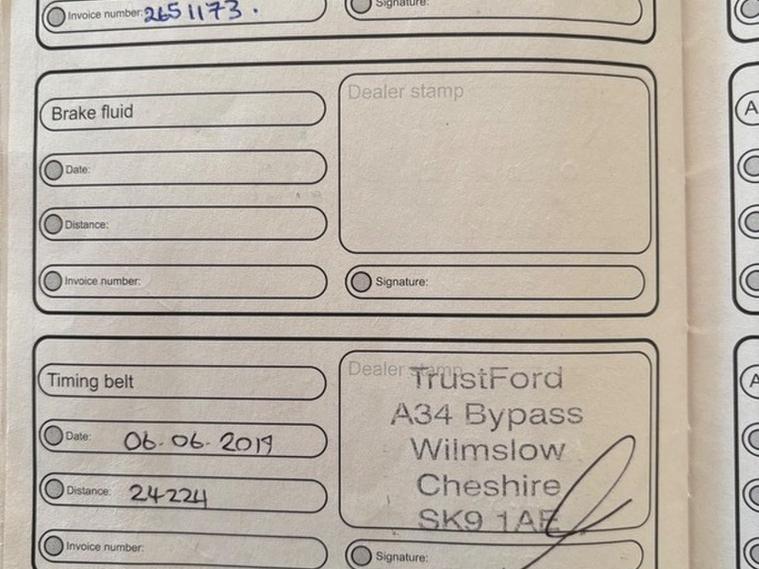 Invoice number: 2651173.
Signature:
Brake fluid
Dealer stamp
Date:
Distance:
Invoice number:
Signature:
Timing belt
Dealer stamp
TrustFord
A34 Bypass
Wilmslow
Cheshire
SK9 1AE
Date: 06-06-2019
Distance: 24224
Invoice number:
Signature:
A
A